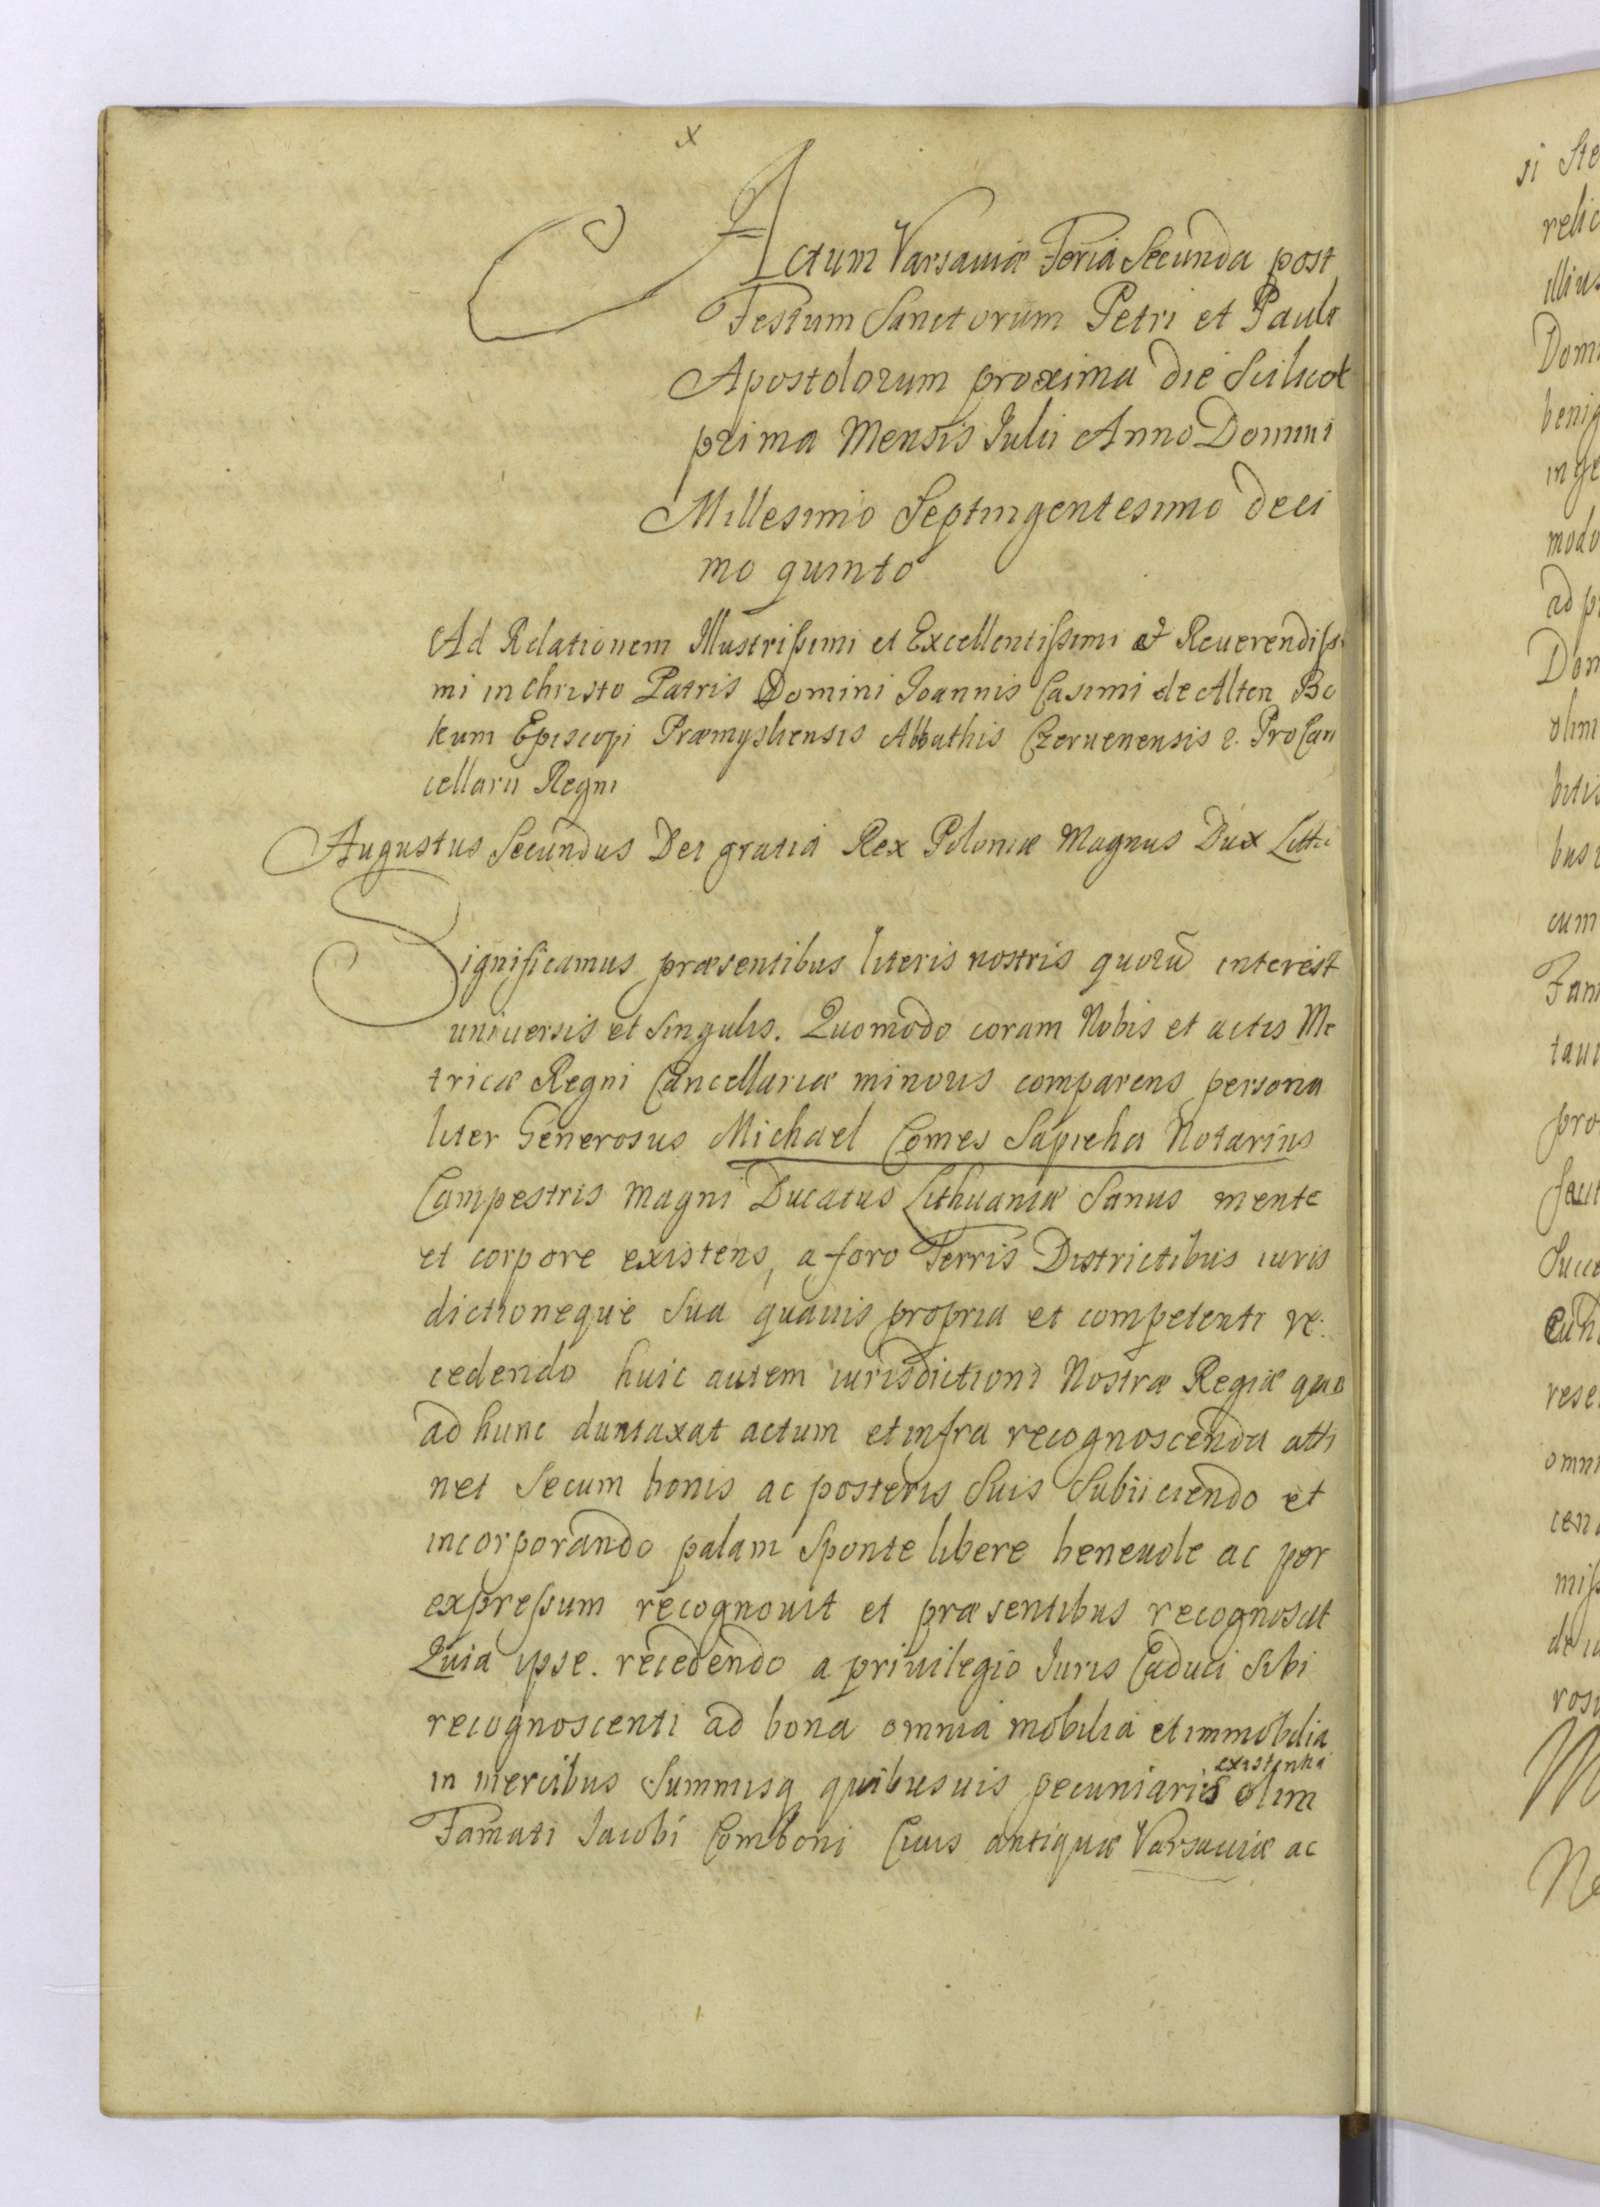 x
Actum Varsaviæ Feria Secunda post
Festum Sanctorum Petri et Pauli
Apostolorum proxima die Scilicet
prima Mensis Iulii Anno Domini
Millesimo Septingentesimo deci
mo quinto
Ad Relationem Illustrissimi et Excellentissimi et Reuerendissi
mi in Christo Patris Domini Joannis Casimi de Alten Bo
kum Episcopi Præmysliensis Abbathis Czeruenensis 2. ProCan
cellarii Regni
Augustus Secundus Dei gratia Rex Poloniæ Magnus Dux Litti
Significamus præsentibus literis nostris quorū interest
uniuersis et singulis. Quomodo coram Nobis et actis Me
tricæ Regni Cancellariæ minoris comparens persona
liter Generosus Michael Comes Sapieha Notarius
Campestris Magni Ducatus Lithuaniæ Sanus mente
et corpore existens, a foro Terris Districtibus iuris
dictioneque Sua quauis propria et competenti re:
cedendo huic autem iurisdictioni Nostræ Regiæ quo
ad hunc duntaxat actum et infra recognoscenda atti
net Secum bonis ac posteris Suis Subiiciendo et
incorporando palam Sponte libere beneuole ac per
expressum recognouit et præsentibus recognoscit
Quia ipse. recedendo a priuilegio Iuris Caduci Sibi
recognoscenti ad bona omnia mobilia et immobilia
in mercibus Summisq quibusuis pecuniariis existentia olim
Famati Jacobi Comboni Ciuis antiquæ Varsauiæ ac
si Ste
relic
illius
Domi
benig
in ge
modo
ad p
Dom
olim
bitis
bus
cum
Fam
taui
pro
Succe
rese
omni
cen
miss
de iu
rosu
M
Ne